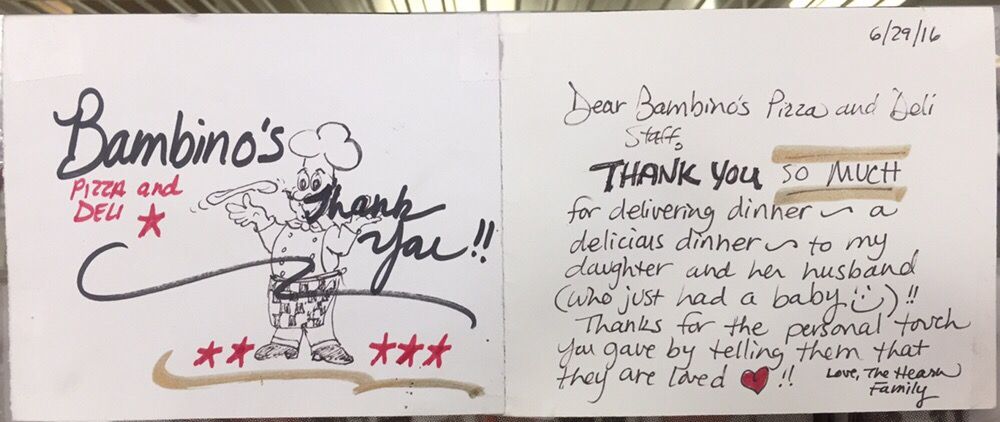 Bambino's
PIZZA and
DELI
Thank
You!!
6/29/16
Dear Bambino's Pizza and Deli
Staff,
THANK YOU SO MUCH
for delivering dinner ~ a
delicious dinner ~ to my
daughter and her husband
(who just had a baby :)) !!
Thanks for the personal touch
you gave by telling them that
they are loved ♥ !!
Love, The Hearn
Family